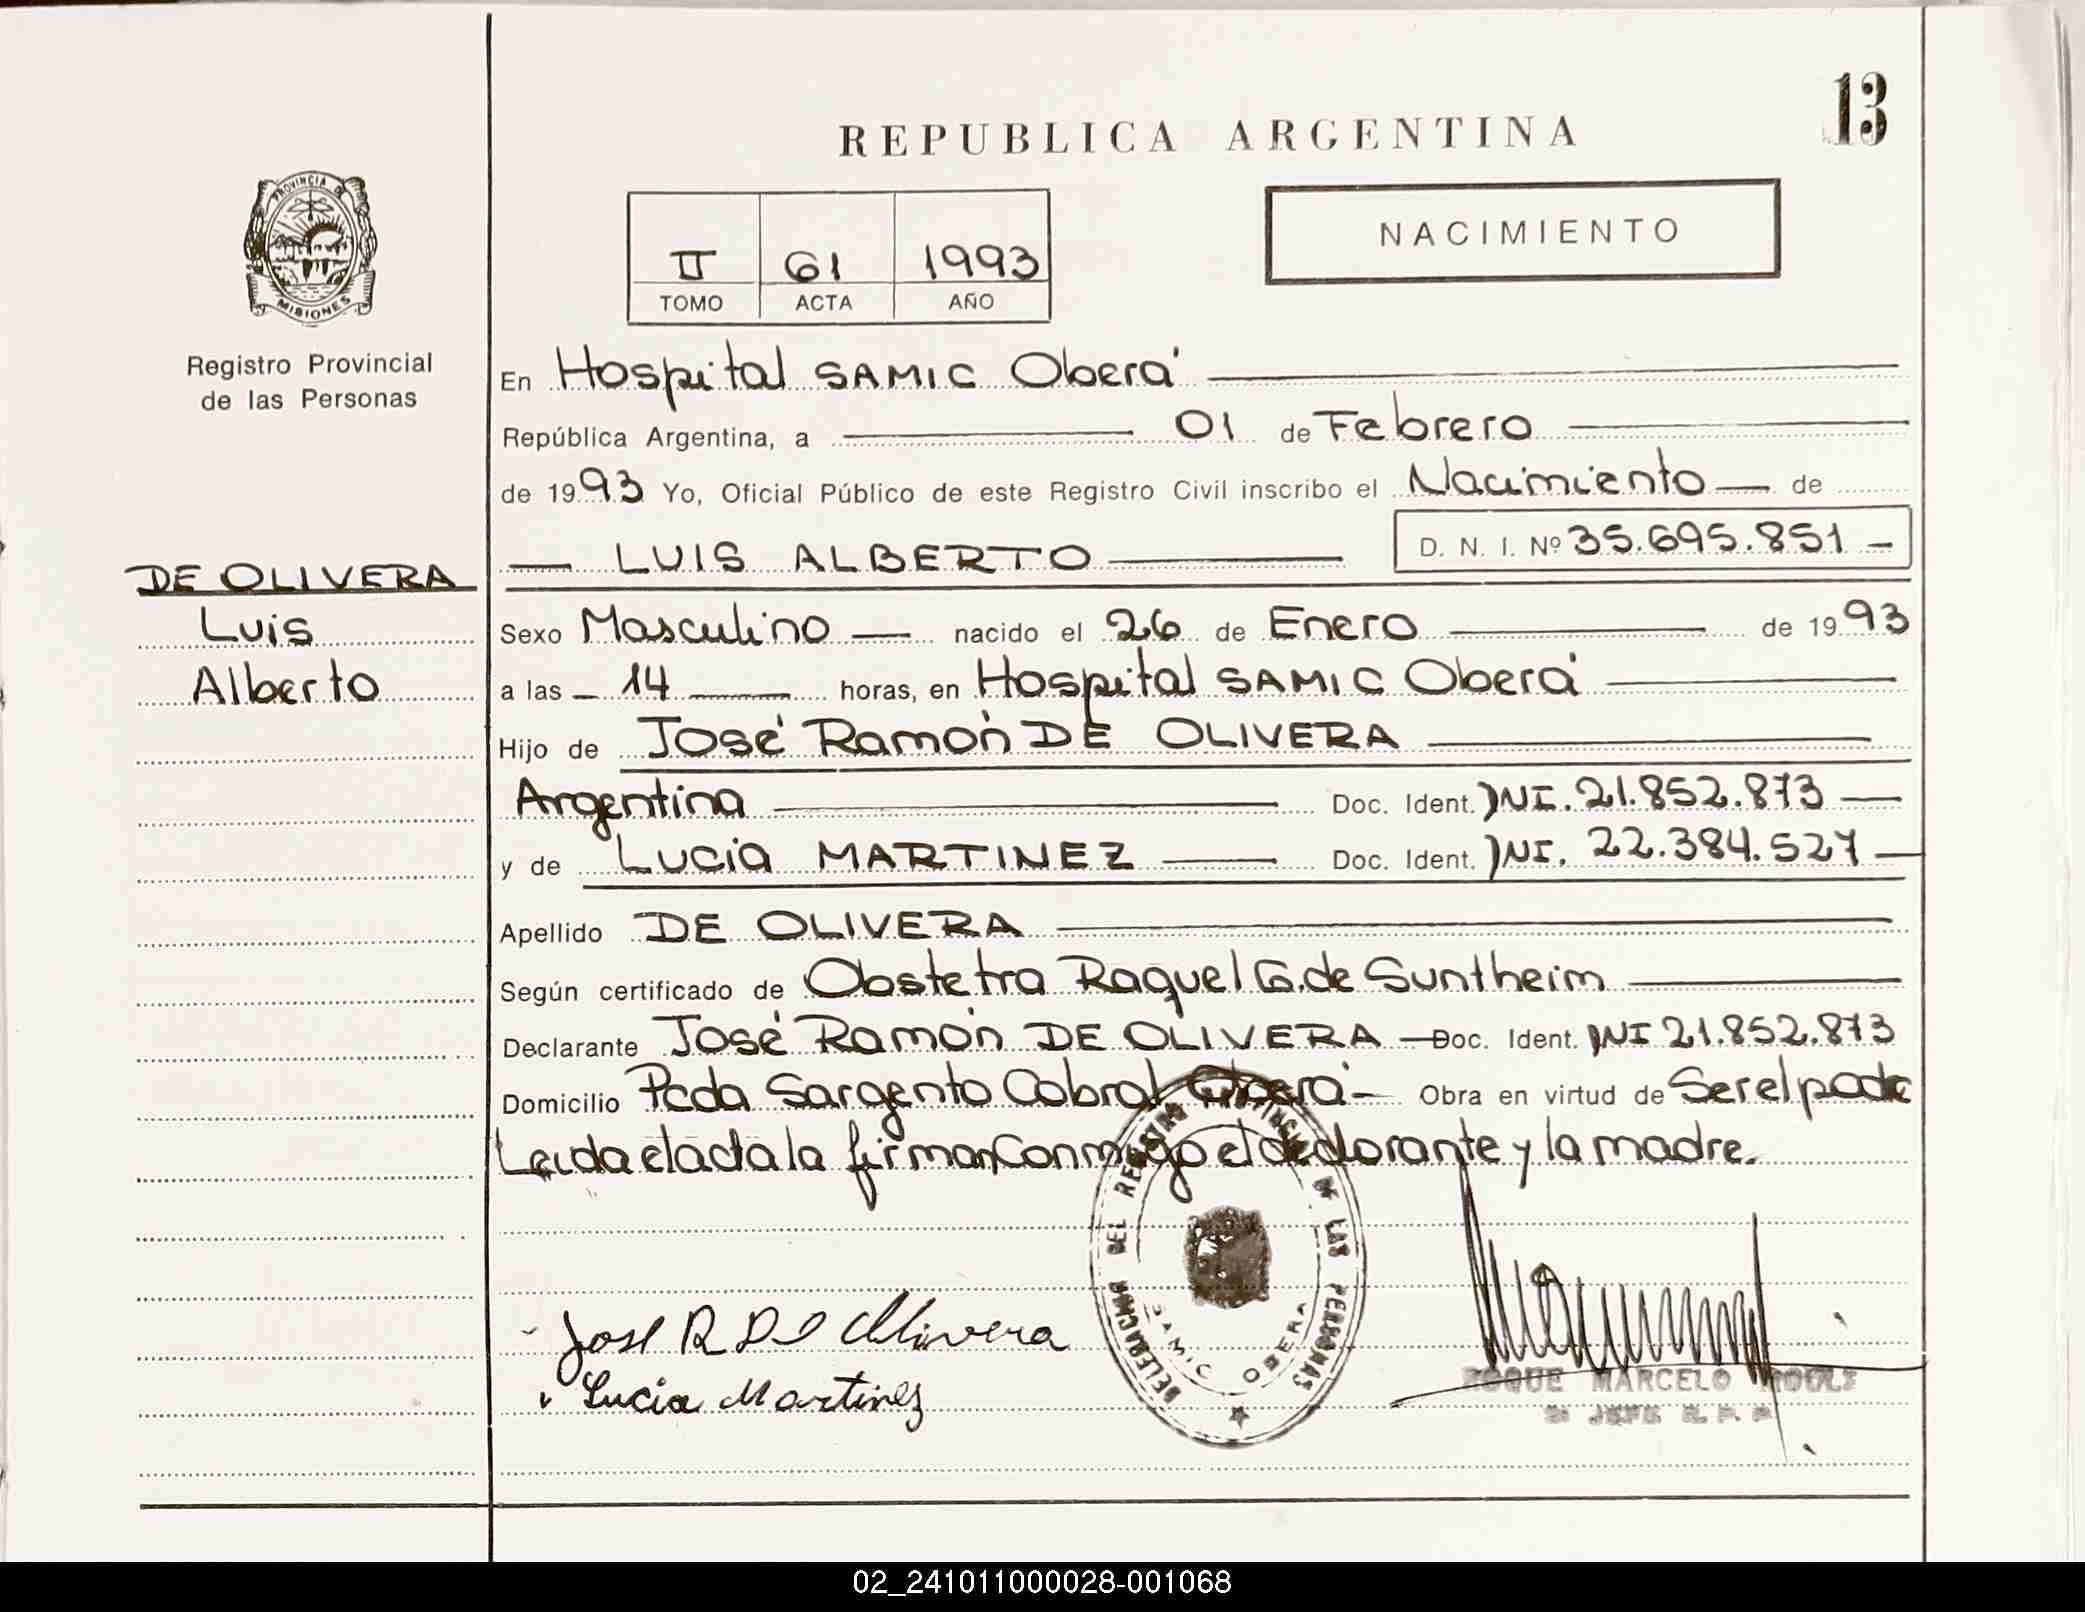 13
REPUBLICA ARGENTINA
NACIMIENTO
II 61 1993
TOMO ACTA AÑO
PROVINCIA DE
MISIONES
Registro Provincial
de las Personas
DE OLIVERA
Luis
Alberto
En Hospital SAMIC Oberá
República Argentina, a 01 de Febrero
de 1993 Yo, Oficial Público de este Registro Civil inscribo el Nacimiento de
LUIS ALBERTO D. N. I. Nº 35.695.851
Sexo Masculino nacido el 26 de Enero de 1993
a las 14 horas, en Hospital SAMIC Oberá
Hijo de José Ramón DE OLIVERA
Argentina Doc. Ident. DNI. 21.852.873
y de Lucia MARTINEZ Doc. Ident. DNI. 22.384.527
Apellido DE OLIVERA
Según certificado de Obstetra Raquel G. de Suntheim
Declarante José Ramón DE OLIVERA Doc. Ident. DNI 21.852.873
Domicilio Pcda Sargento Cabral Oberá Obra en virtud de Ser el padre
Leida el acta la firman conmigo el declarante y la madre.
DELEGACION DEL REGISTRO PROVINCIAL DE LAS PERSONAS
SAMIC OBERA
José R De Olivera
Lucia Martinez
ROQUE MARCELO
JEFE R. P. P.
02_241011000028-001068